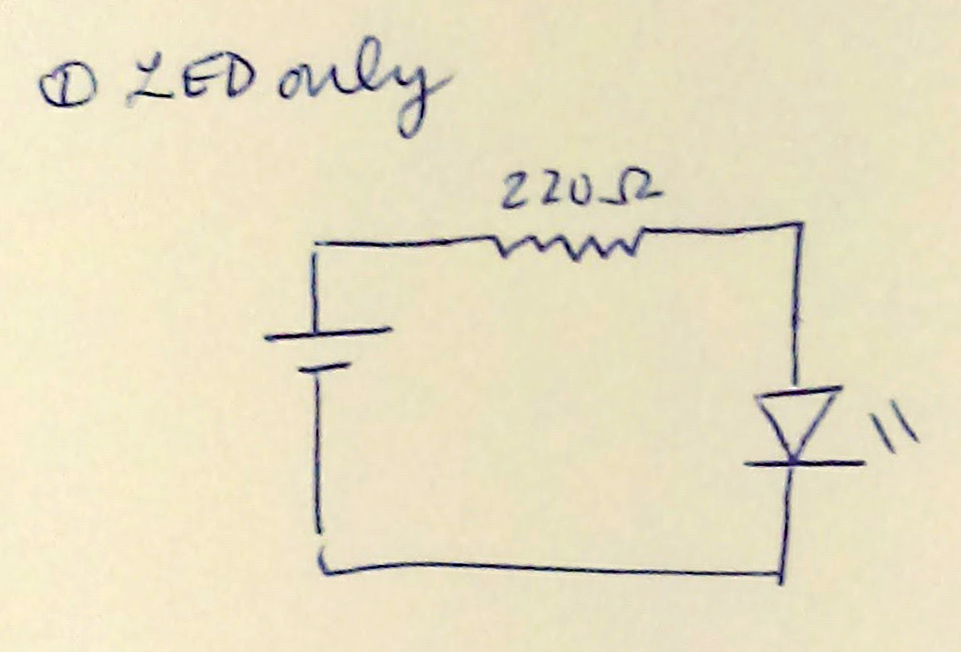 ① LED only
220Ω